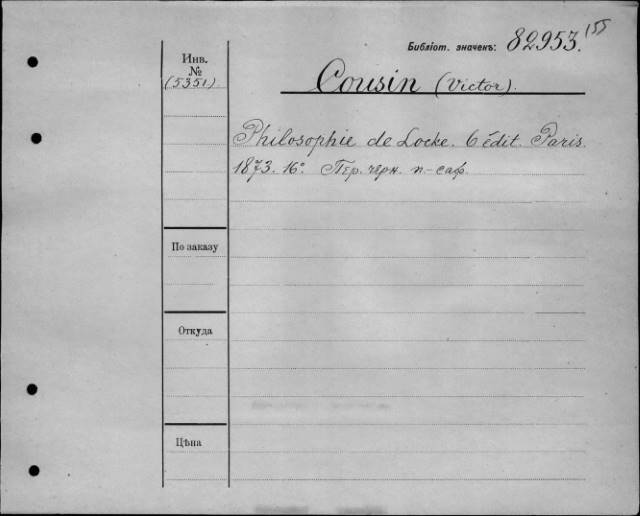 155
Библіот. значекъ: 82953.
Инв.
№
(5351).
Cousin (Victor).
Philosophie de Locke. 6 édit. Paris.
1873. 16º. Пер. черн. п.-саф.
По заказу
Откуда
Цѣна